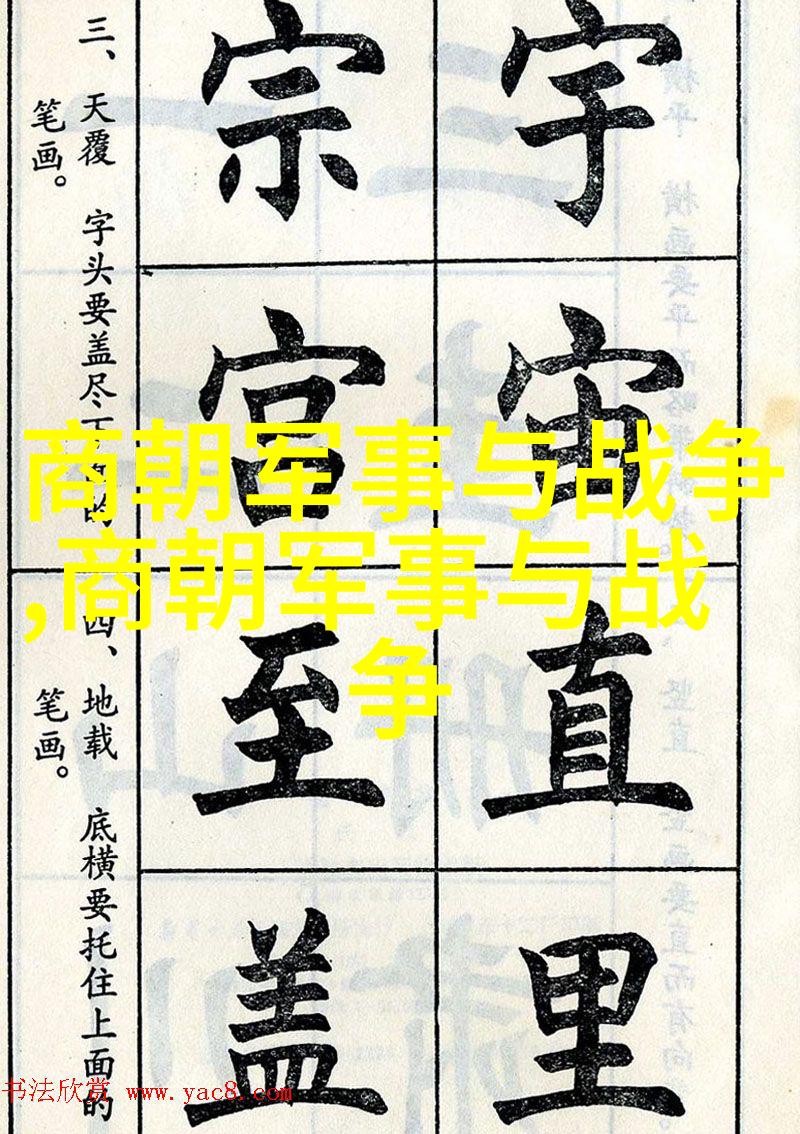 宇
宙
宗
宫
三、天覆 字头要盖尽下面的
笔画。
直
里
至
盖
四、地载 底横要托住上面的
笔画。
商朝军事与战争
,商朝军事与战
争
书法欣赏 www.yac8.com